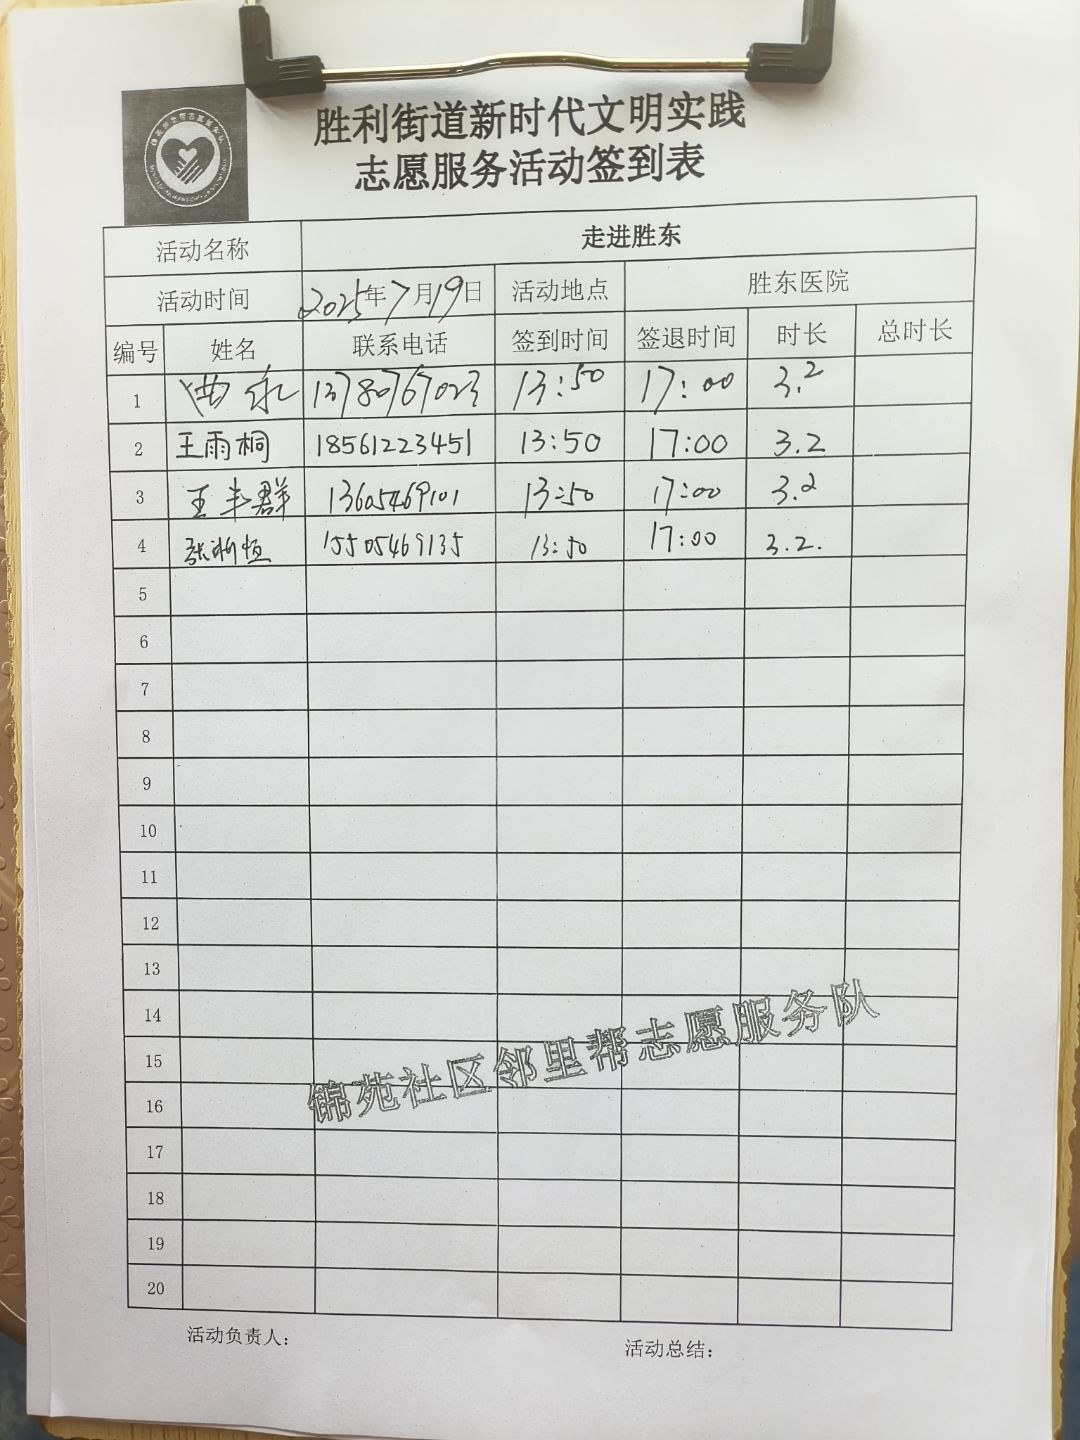 胜利街道新时代文明实践
志愿服务活动签到表
活动名称 走进胜东
活动时间 2025年7月19日 活动地点 胜东医院
编号 姓名 联系电话 签到时间 签退时间 时长 总时长
1 13780767023 13:50 17:00 3.2
2 王雨桐 18561223451 13:50 17:00 3.2
3 王丰群 13605469101 13:50 17:00 3.2
4 15505469135 13:50 17:00 3.2.
5
6
7
8
9
10
11
12
13
14
15
16
17
18
19
20
锦苑社区邻里帮志愿服务队
活动负责人: 活动总结: